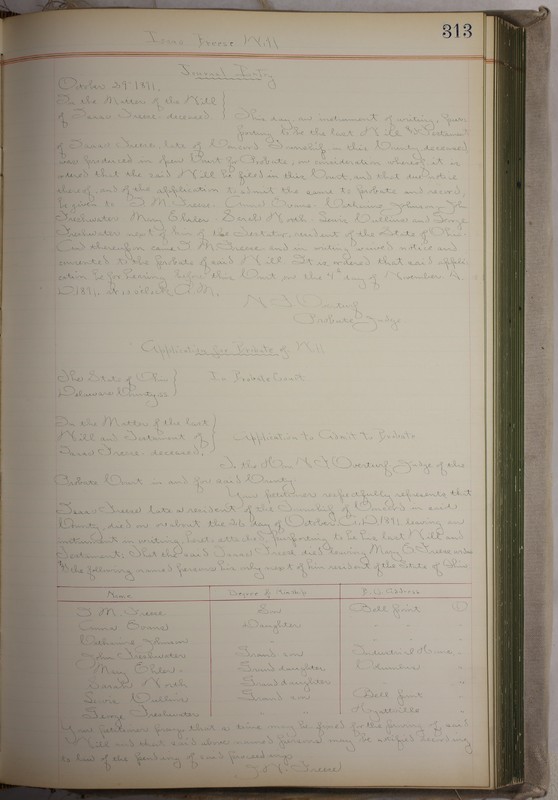 313
Isaac Freese Will
Journal Entry
October 29th 1891.
In the Matter of the Will
of Isaac Freese deceased. This day, an instrument of writing, pur-
porting to be the last Will & Testament
of Isaac Freese, late of Concord Township in this County deceased
was produced in open Court for Probate, in consideration whereof, it is
ordered that the said Will be filed in this Court, and that due notice
thereof, and of the application to admit the same to probate and record,
be given to F. M. Freese Evans Catharine Johnson John
Freshwater Mary Sarah North and George
Freshwater next of kin of the Testator, resident of the State of Ohio.
And thereupon came F. M. Freese and in writing waived notice and
consented to the Probate of said Will. It is ordered that said appli-
cation be for hearing, before this Court on the 4th day of November A.
D. 1891, at o'clock A.M.
Probate Judge
Application for Probate of Will
The State of Ohio In Probate Court
Delaware County ss
In the Matter of the last
Will and Testament of Application to Admit to Probate
Isaac Freese deceased.
To the Hon. Judge of the
Probate Court in and for said County.
Your petitioner respectfully represents, that
Isaac Freese late a resident of the Township of Concord in said
County, died on or about the day of October A.D. 1891 leaving an
instrument in writing, hereto attached, purporting to be his last Will and
Testament; That the said Isaac Freese died leaving Mary Freese
the following named persons his only next of kin resident of the State of Ohio
Name Degree of Kinship P.O. Address
F. M. Freese Son Bell Point O
Evans Daughter " "
Catharine Johnson
John Freshwater Grand son Industrial Home "
Mary Grand daughter Columbus "
Sarah North Grand daughter
Grand son Bell Point "
George Freshwater " Hyattville "
Your petitioner prays that a time may be fixed for the proving of said
Will and that said above named persons may be notified according
to law of the pendency of said proceedings.
F. M. Freese